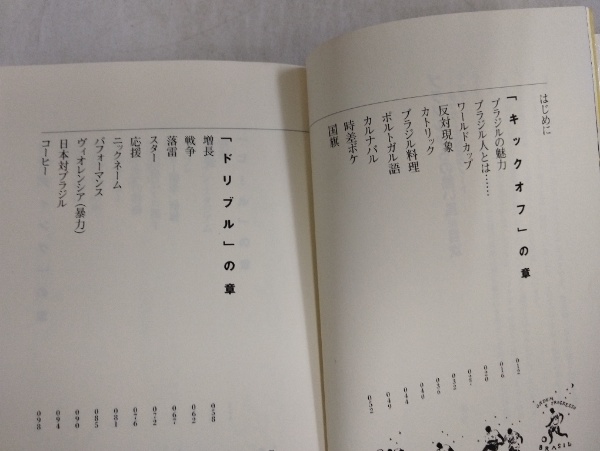 はじめに
「キックオフ」の章
ブラジルの魅力 012
ブラジル人とは…… 016
ワールドカップ 020
反対現象
カトリック 032
ブラジル料理
ポルトガル語 040
カルナバル 044
時差ボケ
国旗 052
ORDEM E PROGRESSO
BRASIL
「ドリブル」の章
増長 058
戦争 062
落雷 067
スター 072
応援 076
ニックネーム 081
パフォーマンス 085
ヴィオレンシア(暴力) 090
日本対ブラジル 094
コーヒー 098